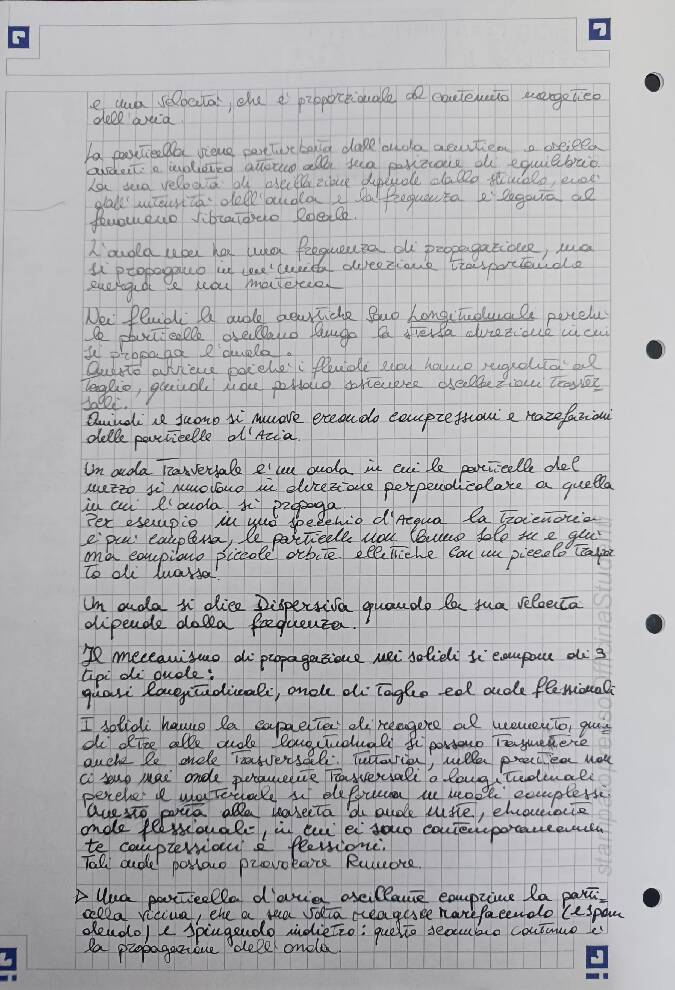 e una velocità, che è proporzionale al contenuto energetico
dell'aria.
La particella viene perturbata dall'onda acustica e oscilla
avanti e indietro attorno alla sua posizione di equilibrio
La sua velocità di oscillazione dipende dallo stimolo, cioè
dall'intensità dell'onda e la frequenza è legata al
fenomeno vibratorio locale.
L'onda non ha una frequenza di propagazione, ma
si propagano in un'unica direzione trasportando
energia e non materia
Nei fluidi le onde acustiche sono longitudinali perché
le particelle oscillano lungo la stessa direzione in cui
si propaga l'onda.
Questo avviene poiché i fluidi non hanno rigidità al
taglio, quindi non possono sostenere oscillazioni trasver
sali.
Quindi il suono si muove creando compressioni e rarefazioni
delle particelle d'Aria.
Un onda Trasversale è un onda in cui le particelle del
mezzo si muovono in direzione perpendicolare a quella
in cui l'onda si propaga
Per esempio in uno specchio d'Acqua la traiettoria
è più complessa, le particelle non vanno solo su e giù
ma compiono piccole orbite ellittiche con un piccolo traspor
to di massa
Un onda si dice Dispersiva quando la sua velocità
dipende dalla frequenza.
Il meccanismo di propagazione nei solidi si compone di 3
tipi di onde:
quasi longitudinali, onde di taglio ed onde flessionali
I solidi hanno la capacità di reagire al momento, quin
di oltre alle onde longitudinali si possono Trasmettere
anche le onde Trasversali. Tuttavia, nella pratica non
ci sono mai onde puramente Trasversali o longitudinali
perché il materiale si deforma in modi complessi
Questo porta alla nascita di onde miste, chiamate
onde flessionali, in cui ci sono contemporaneamen
te compressioni e flessioni.
Tali onde possono provocare Rumore.
▷ Una particella d'aria oscillante comprime la parti=
cella vicina, che a sua volta reagisce rarefacendo (espan
dendo) e spingendo indietro: questo scambio continuo è
la propagazione dell'onda.